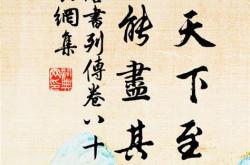 天下至
能盡其
唐書列傳卷八十
網集